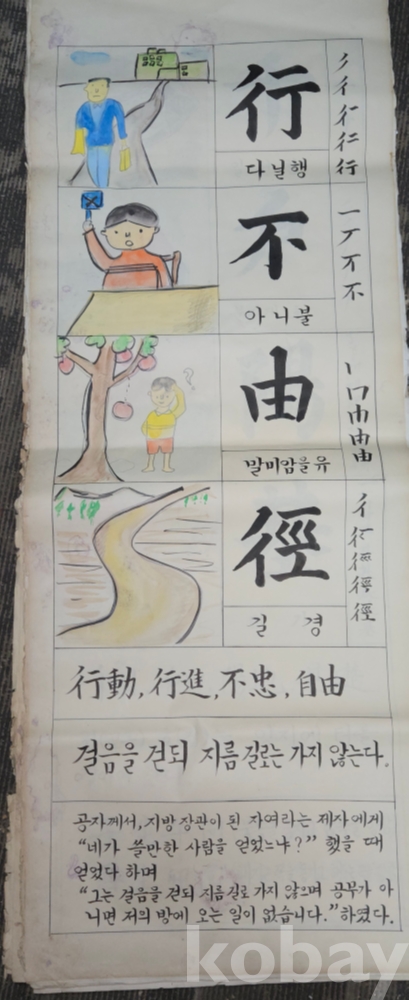 行
다닐행
彳 行
不
아니불
一 丆 不 不
由
말미암을유
丨 冂 由 由
徑
길 경
彳 徑
行動, 行進, 不忠, 自由
걸음을 걷되 지름길로는 가지 않는다.
공자께서, 지방장관이 된 자여라는 제자에게
"네가 쓸만한 사람을 얻었느냐?" 했을 때
얻었다 하며
"그는 걸음을 걷되 지름길로 가지 않으며 공부가 아
니면 저의 방에 오는 일이 없습니다." 하였다.
kobay